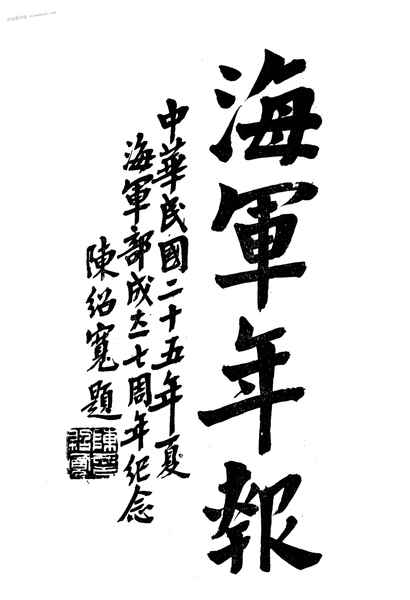 海軍年報
中華民國二十五年夏
海軍部成立七周年紀念
陳紹寬題
陳紹寬